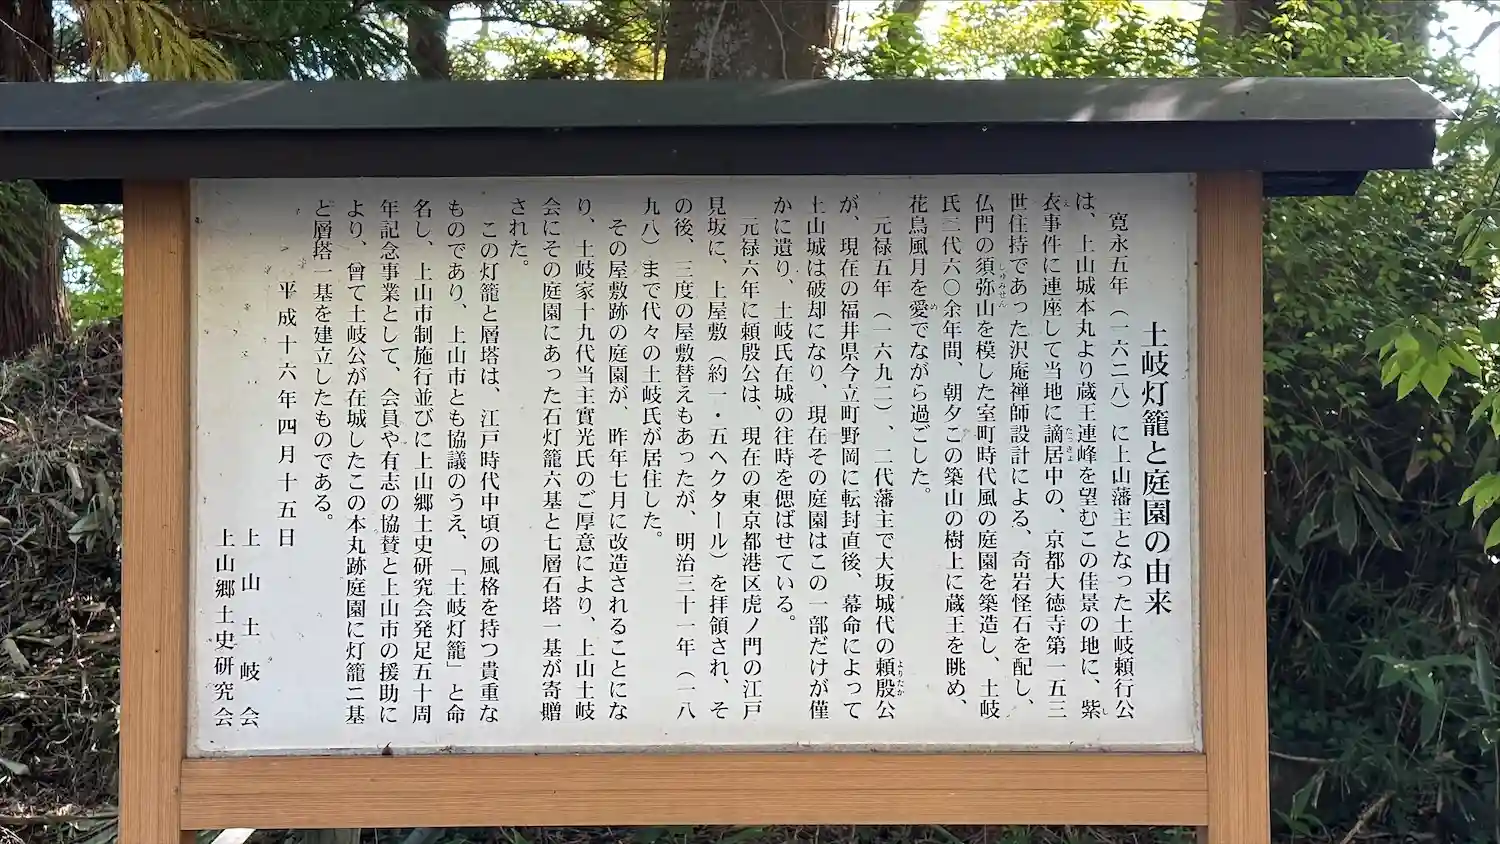 土岐灯籠と庭園の由来
寛永五年(一六二八)に上山藩主となった土岐頼行公
は、上山城本丸より蔵王連峰を望むこの佳景の地に、紫
衣事件に連座して当地に謫居中の、京都大徳寺第一五三
世住持であった沢庵禅師設計による、奇岩怪石を配し、
仏門の須弥山を模した室町時代風の庭園を築造し、土岐
氏二代六〇余年間、朝夕この築山の樹上に蔵王を眺め、
花鳥風月を愛でながら過ごした。
元禄五年(一六九二)、二代藩主で大坂城代の頼殷公
が、現在の福井県今立町野岡に転封直後、幕命によって
上山城は破却になり、現在その庭園はこの一部だけが僅
かに遺り、土岐氏在城の往時を偲ばせている。
元禄六年に頼殷公は、現在の東京都港区虎ノ門の江戸
見坂に、上屋敷(約一・五ヘクタール)を拝領され、そ
の後、三度の屋敷替えもあったが、明治三十一年(一八
九八)まで代々の土岐氏が居住した。
その屋敷跡の庭園が、昨年七月に改造されることにな
り、土岐家十九代当主實光氏のご厚意により、上山土岐
会にその庭園にあった石灯籠六基と七層石塔一基が寄贈
された。
この灯籠と層塔は、江戸時代中頃の風格を持つ貴重な
ものであり、上山市とも協議のうえ、「土岐灯籠」と命
名し、上山市制施行並びに上山郷土史研究会発足五十周
年記念事業として、会員や有志の協賛と上山市の援助に
より、曾て土岐公が在城したこの本丸跡庭園に灯籠二基
と層塔一基を建立したものである。
平成十六年四月十五日
上山土岐会
上山郷土史研究会